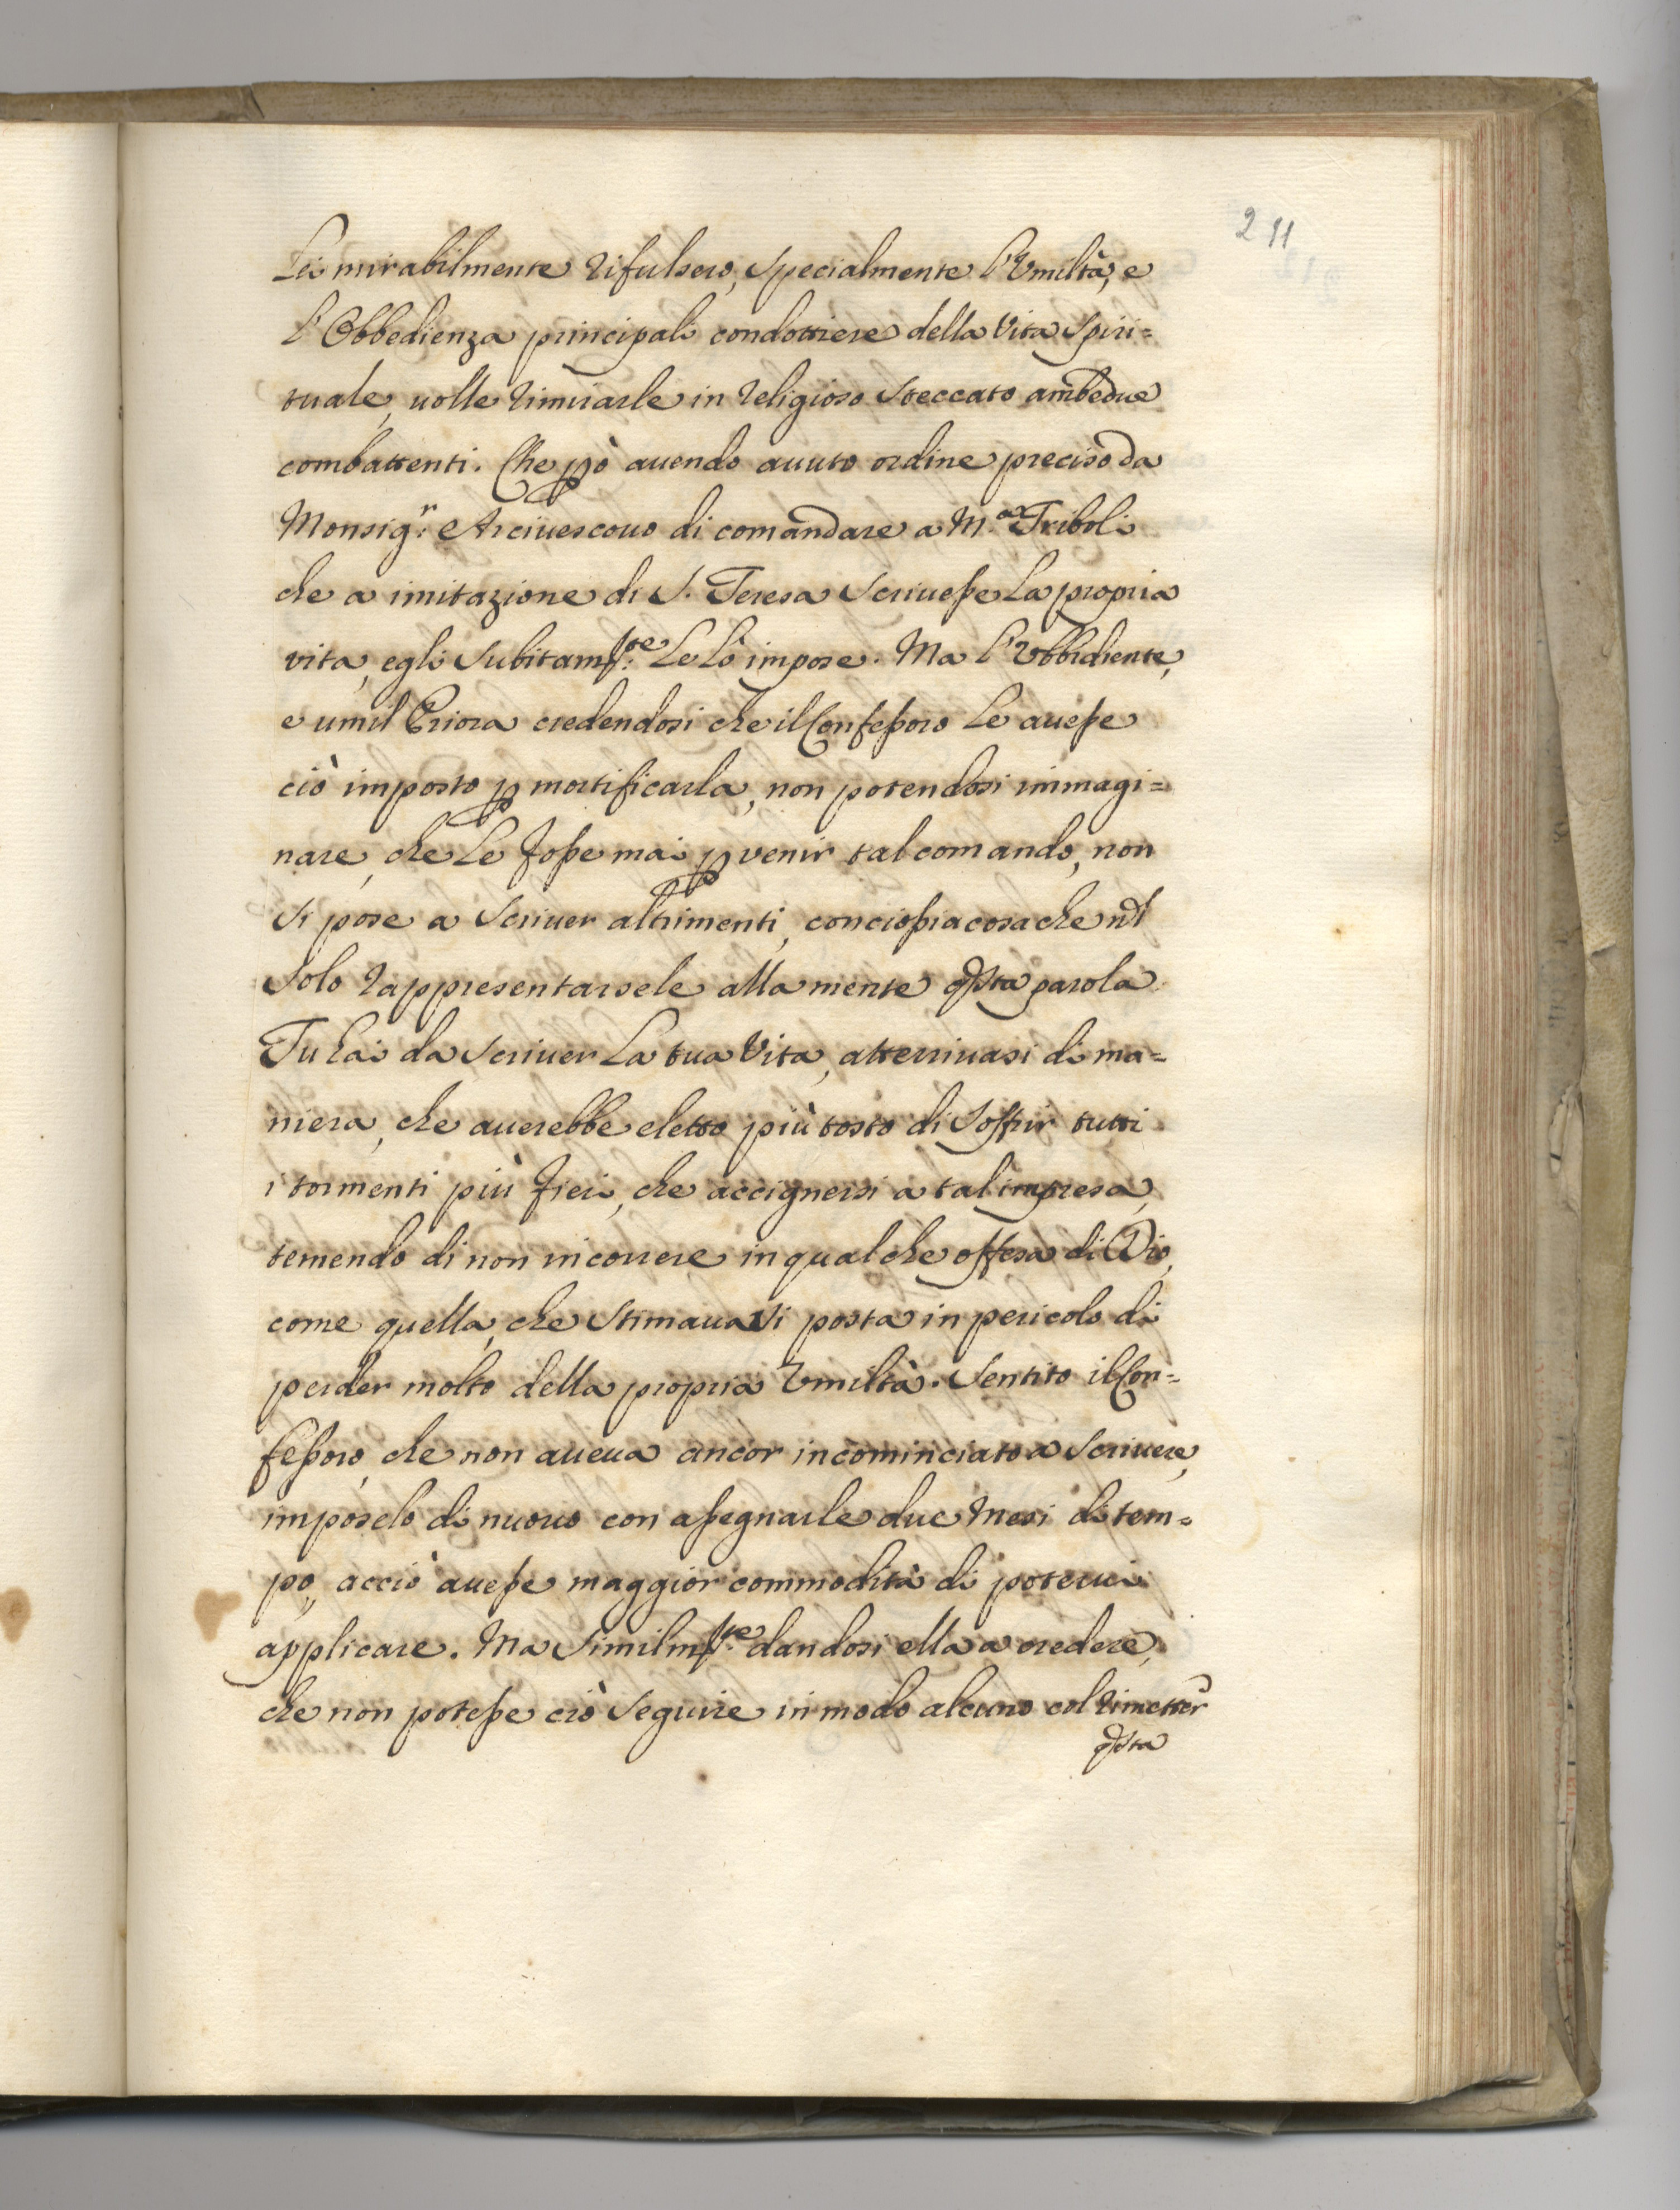 211
Lei mirabilmente rifulsero, specialmente l'Umiltà, e
l'Obbedienza principali condottiere della Vita Spiri=
tuale, volle rimirarle in religioso steccato ambedue
combattenti. Che però auendo auuto ordine preciso da
Monsig.r Arciuescouo di comandare a M.a Triboli
che a imitazione di S. Teresa scriuesse la propria
vita, egli subitam.te le lo impose. Ma l'Ubbidiente,
e umil Priora credendosi che il Confessoro le auesse
ciò imposto p mortificarla, non potendosi immagi=
nare, che le fosse mai p venir tal comando, non
si pose a scriuer altrimenti, conciossiacosache nel
solo rappresentarsele alla mente qsta parola
Tu hai da scriuer la tua Vita, atterriuasi di ma=
niera, che auerebbe eletto più tosto di soffrir tutti
i tormenti più fieri, che accignersi a tal impresa,
temendo di non incorrere in qualche offesa di Dio,
come quella, che stimauasi posta in pericolo di
perder molto della propria Umiltà. Sentito il Con=
fessoro, che non aueua ancor incominciato a scriuere,
imposelo di nuouo con assegnarle due mesi di tem=
po, acciò auesse maggior commodità di poterui
applicare. Ma similm.te dandosi ella a credere,
che non potesse ciò seguire in modo alcuno col rimetter
qsta